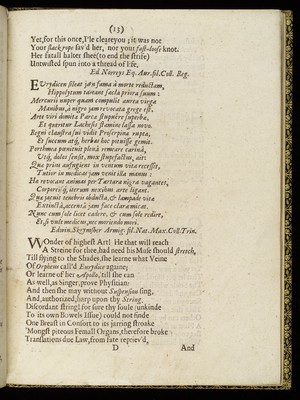 (13)
Yet, for this once, I'le cleare you; it was not
Your slack rope sav'd her, nor your fast-loose knot.
Her fatall halter shee (to end the strife)
Untwisted spun into a thread of life,
Ed Norreys Eq. Aur. fil. Coll. Reg.
EUrydicen sileat jam fama à morte reductam,
Hippolytum taceant sacla priora suum:
Mercurii nuper quam compulit aurea virga
Manibus, à nigro jam revocata grege est.
Arte viri domita Parca stupuêre superba,
Et queritur Lachesis stamini lassa novo.
Regni claustra sui vidit Proserpina rupta,
Et succum aitq; herbas hoc potuisse gemit.
Porthmea pœnituit plenâ remeare carinâ,
Utq; dolus sensit, mox stupefactus, ait:
Qua prius aufugiens in ventum vita recessit,
Tutior in medicas jam venit illa manus:
Hæ revocant animas per Tartara nigra vagantes,
Corporiq́;, iterum nexibus arte ligant.
Qua jacuit tenebris obducta, & lampade vitæ
Extinctâ, accensâ jam face clara micat.
Nunc cum sole licet cadere, & cum sole redire,
Et si vnls medicum, nec moriendo mori.
Edwin. Skrymsher Armig. fil. Nat. Max. Coll. Trin.
WOnder of highest Art! He that will reach
A Streine for thee, had need his Muse should stretch,
Till flying to the Shades, she learne what Veine
Of Orpheus call'd Eurydice againe;
Or learne of her Apollo, till she can
As well, as Singer, prove Physitian:
And then she may without Suspension sing,
And, authorized, harp upon thy String.
Discordant string! for sure thy foule (unkinde
To its own Bowels Issue) could not finde
One Breast in Consort to its jarring stroake
'Mongst piteous Femall Organs, therefore broke
Translations due Law, from fate repriev'd,
D
And